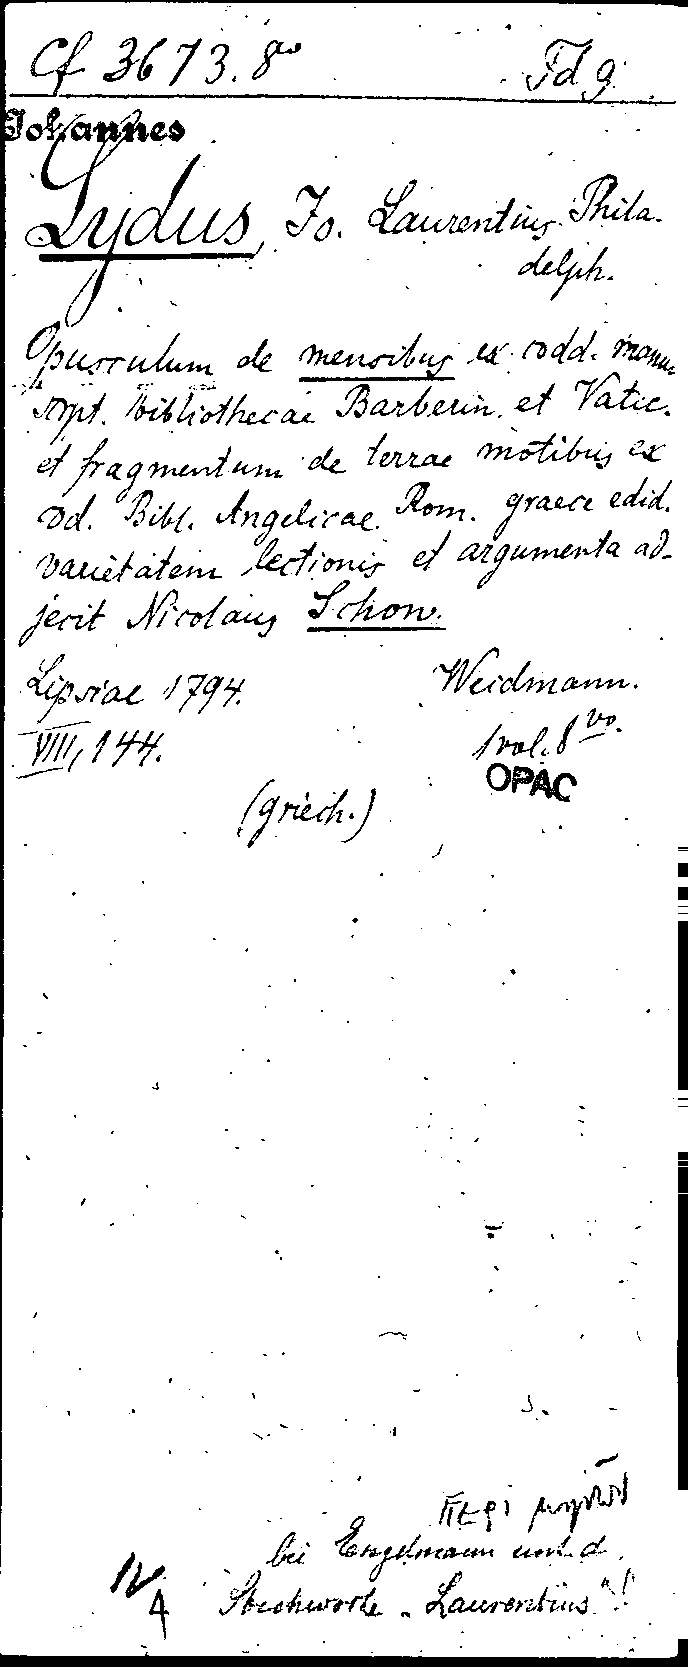 Cf 3673. 8vo Fd 9.
Johannes
Lydus, Jo. Laurentius Phila-
delph.
Opusculum de mensibus ex codd. manu-
scpt. bibliothecae Barberin. et Vatic.
et fragmentum de terrae motibus ex
cod. Bibl. Angelicae Rom. graece edid.
varietatem lectionis et argumenta ad-
jecit Nicolaus Schow.
Lipsiae 1794. Weidmann.
VIII, 144. 1 vol. 8vo.
OPAC
(griech.)
περι μηνῶν
bei Engelmann unt. d.
Stichworte „Laurentius"!
4